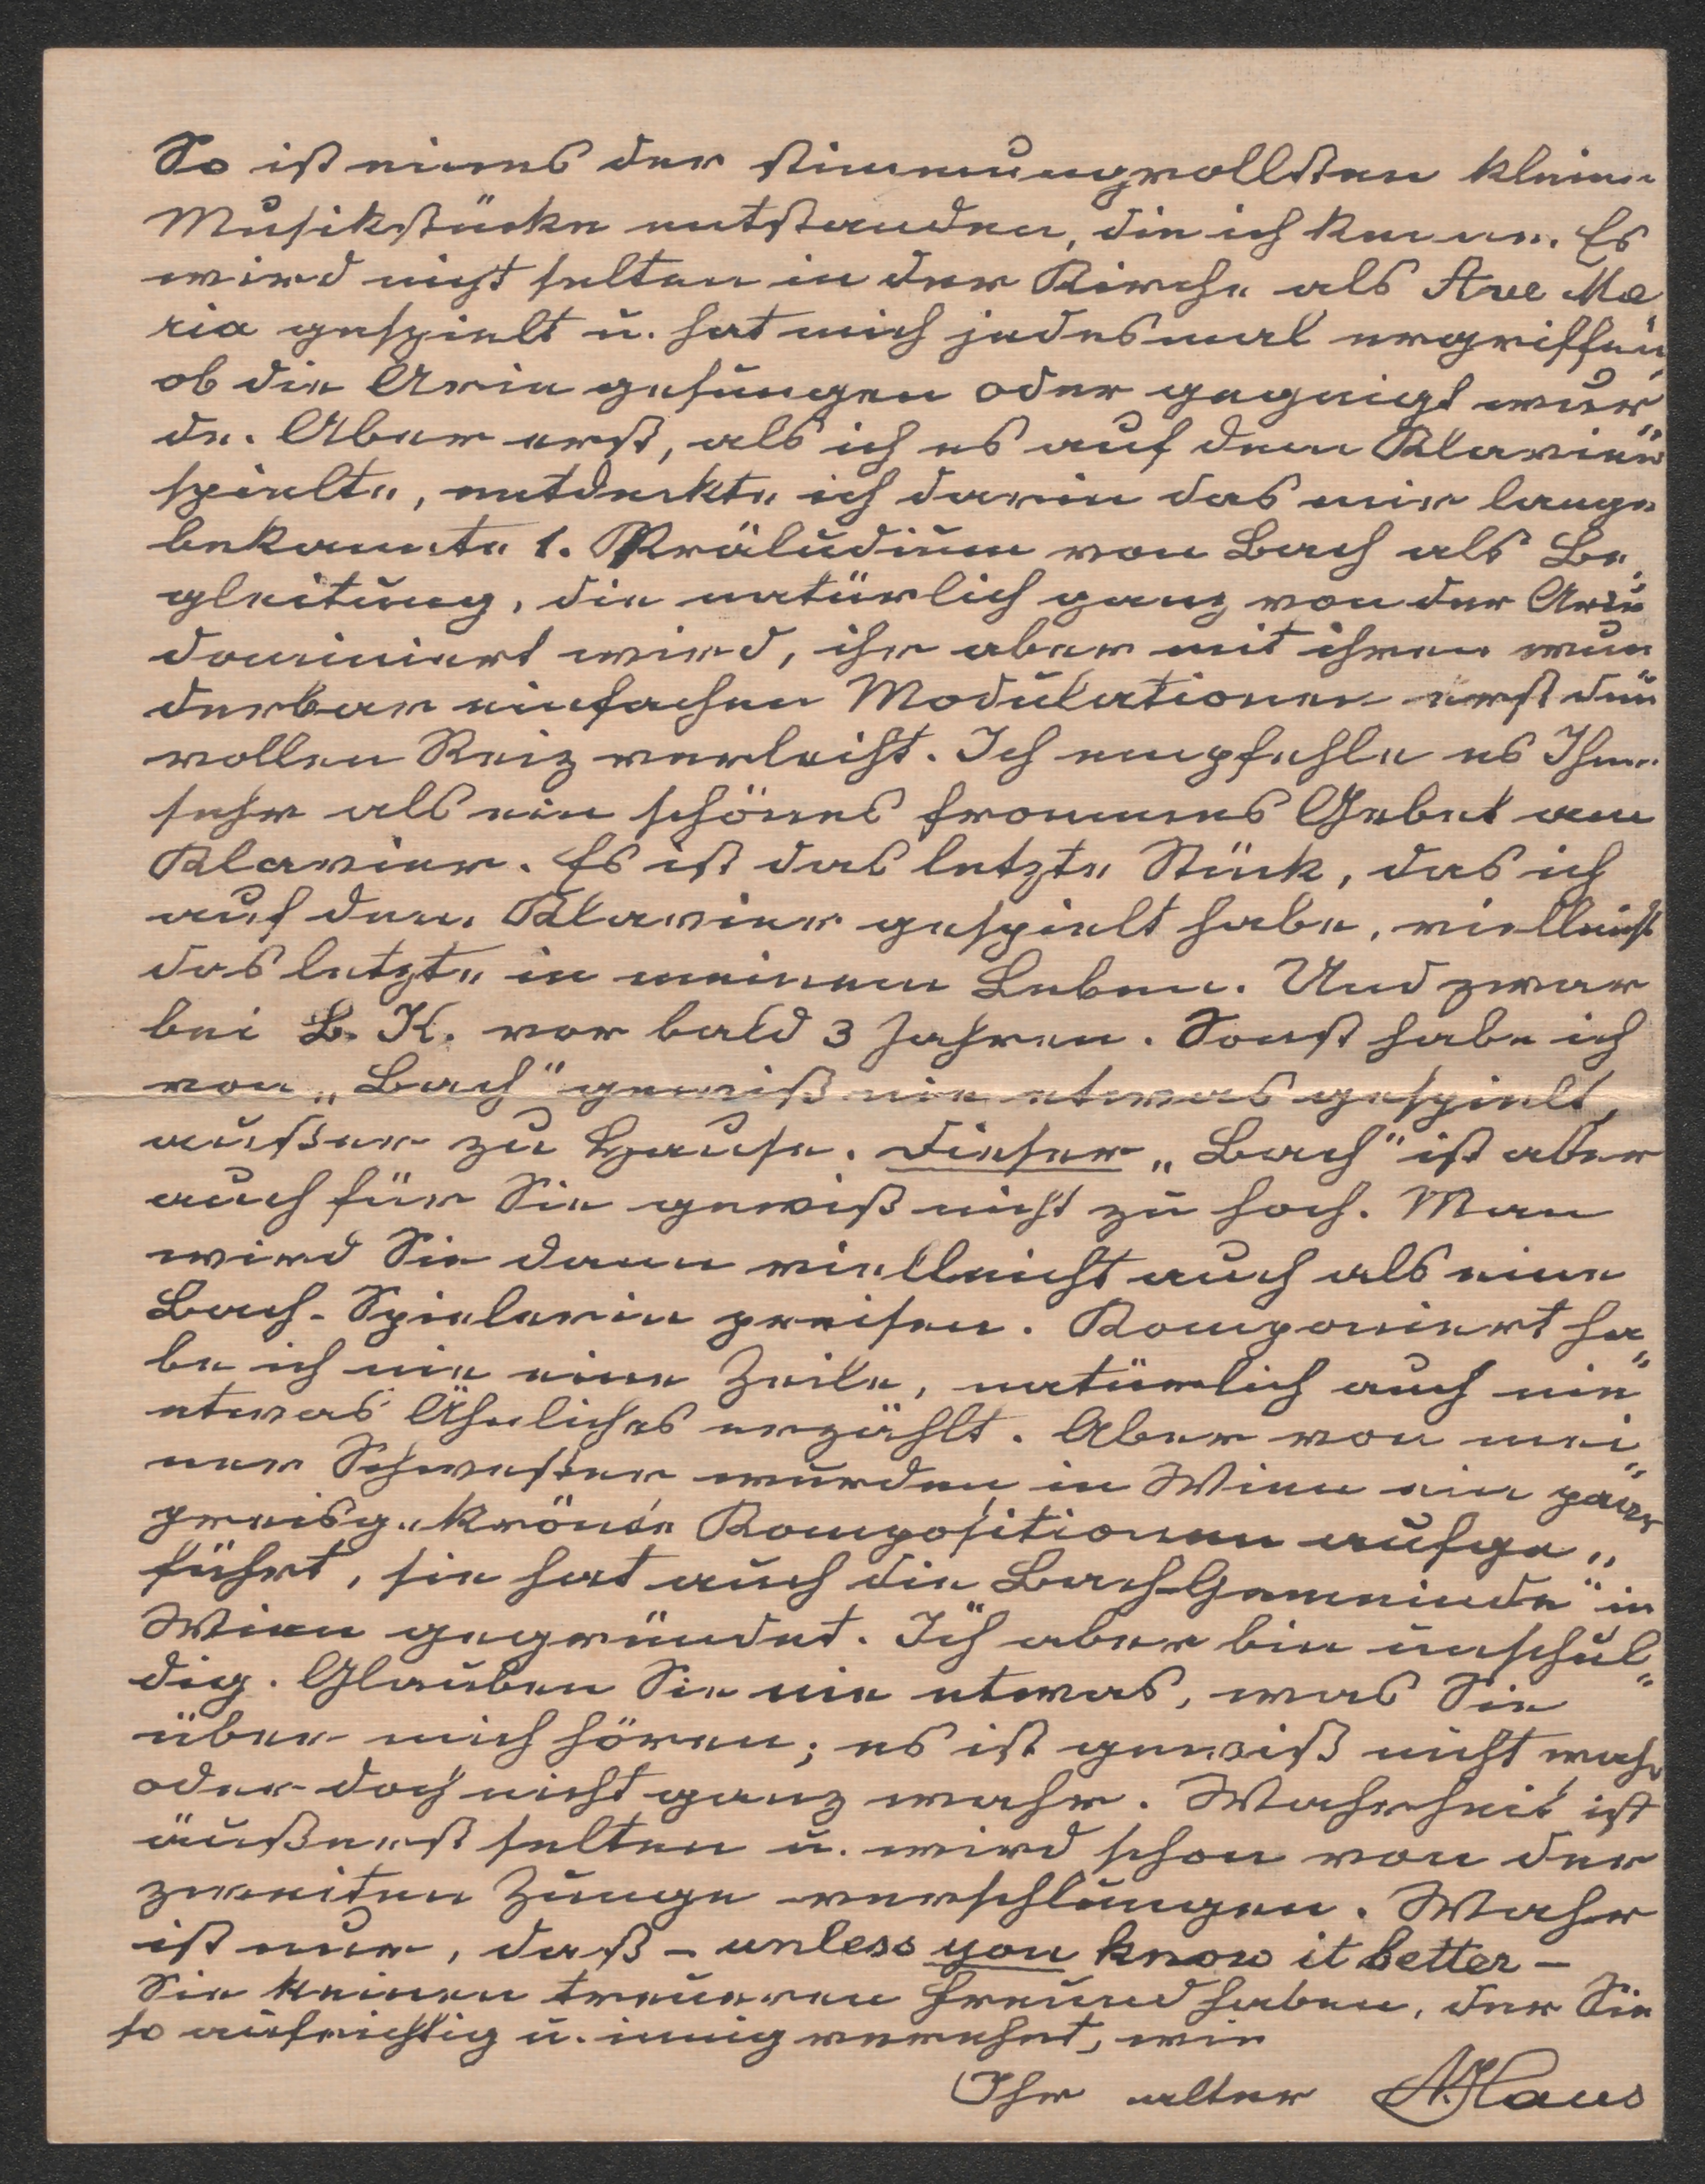 So ist eines der stimmungvollsten kleinen
Musikstücke entstanden, die ich kenne. Es
wird nicht selten in der Kirche als Ave Ma„
ria gespielt u. hat mich jedesmal ergriffen,
ob die Arie gesungen oder gegeigt wur„
de. Aber erst, als ich es auf dem Klavier
spielte, entdeckte ich darin das mir lange
bekannte 1. Präludium von Bach als Be„
gleitung, die natürlich ganz von der Arie
dominiert wird, ihr aber mit ihren wun„
derbar einfachen Modulationen erst den
vollen Reiz verleiht. Ich empfehle es Ihnen
sehr als ein schönes frommes Gebet am
Klavier. Es ist das letzte Stück, das ich
auf dem Klavier gespielt habe, vielleicht
das letzte in meinem Leben. Und zwar
bei B. K. vor bald 3 Jahren. Sonst habe ich
von „Bach" gewiß nie etwas gespielt,
außer zu Hause. Dieser „Bach" ist aber
auch für Sie gewiß nicht zu hoch. Man
wird Sie dann vielleicht auch als eine
Bach-Spielerin preisen. Komponiert ha„
be ich nie eine Zeile, natürlich auch nie
etwas Ähnliches erzählt. Aber von mei„
ner Schwester wurden in Wien ein paar
preisgekrönte Kompositionen aufge„
führt, sie hat auch die Bach-Gemeinde" in
Wien gegründet. Ich aber bin unschul„
dig. Glauben Sie nie etwas, was Sie
über mich hören; es ist gewiß nicht wahr
oder doch nicht ganz wahr. Wahrheit ist
äußerst selten u. wird schon von der
zweiten Zunge verschlungen. Wahr
ist nur, daß – unless you know it better –
Sie keinen treueren Freund haben, der Sie
so aufrichtig u. innig verehrt, wie
Ihr alter A. Haus